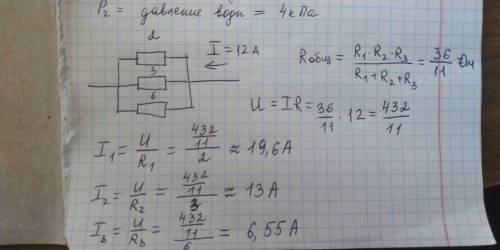 P₂ = давление воды = 4кПа
2
3
6
I = 12А
Rобщ = R₁·R₂·R₃ / R₁+R₂+R₃ = 36/11 Ом
U = IR = 36/11 · 12 = 432/11
I₁ = U/R₁ = 432/11 / 2 ≈ 19,6А
I₂ = U/R₂ = 432/11 / 3 ≈ 13А
I₃ = U/R₃ = 432/11 / 6 = 6,55А